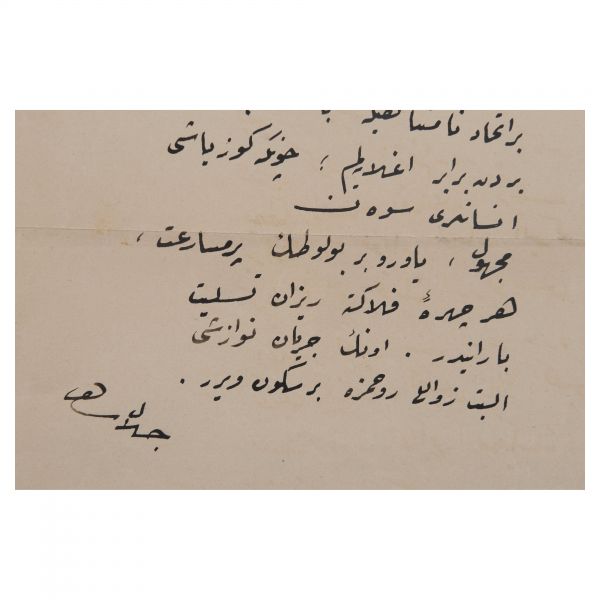 بر اتحاد
بردن برابر اغلایلم ؛ چونکه کوز یاشی
انسانلری سوه ن
مجهول ، یاورو بر بولوطك پرمسارعت ،
هر چهرهٔ فلاکته ریزان تسلیت
بارانیدر . اونك جریان نوازشی
البت زواللی روحمزه بر سکون ویرر .
جلال